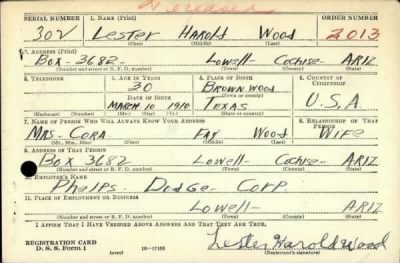 Deceased
SERIAL NUMBER 1. NAME (Print) ORDER NUMBER
302 Lester Harold Wood 2013
(First) (Middle) (Last)
2. ADDRESS (Print)
Box-3682- Lowell- Cochise- ARIZ
(Number and street or R. F. D. number) (Town) (County) (State)
3. TELEPHONE 4. AGE IN YEARS 5. PLACE OF BIRTH 6. COUNTRY OF CITIZENSHIP
30 Brown Wood
DATE OF BIRTH (Town or county)
March 10 1910 Texas U.S.A.
(Exchange) (Number) (Mo.) (Day) (Yr.) (State or country)
7. NAME OF PERSON WHO WILL ALWAYS KNOW YOUR ADDRESS 8. RELATIONSHIP OF THAT PERSON
Mrs- Cora Fay Wood Wife
(Mr., Mrs., Miss) (First) (Middle) (Last)
9. ADDRESS OF THAT PERSON
Box 3682 Lowell- Cochise- ARIZ
(Number and street or R. F. D. number) (Town) (County) (State)
10. EMPLOYER'S NAME
Phelps- Dodge- Corp.
11. PLACE OF EMPLOYMENT OR BUSINESS
Lowell- ARIZ
(Number and street or R. F. D. number) (Town) (County) (State)
I AFFIRM THAT I HAVE VERIFIED ABOVE ANSWERS AND THAT THEY ARE TRUE.
REGISTRATION CARD
D. S. S. Form 1 (over) 16-17105 Lester Harold Wood
(Registrant's signature)